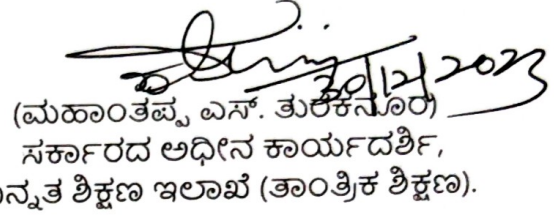 30/12/2023
(ಮಹಾಂತಪ್ಪ ಎಸ್. ತುರಕನೂರ)
ಸರ್ಕಾರದ ಅಧೀನ ಕಾರ್ಯದರ್ಶಿ,
ನ್ನತ ಶಿಕ್ಷಣ ಇಲಾಖೆ (ತಾಂತ್ರಿಕ ಶಿಕ್ಷಣ).